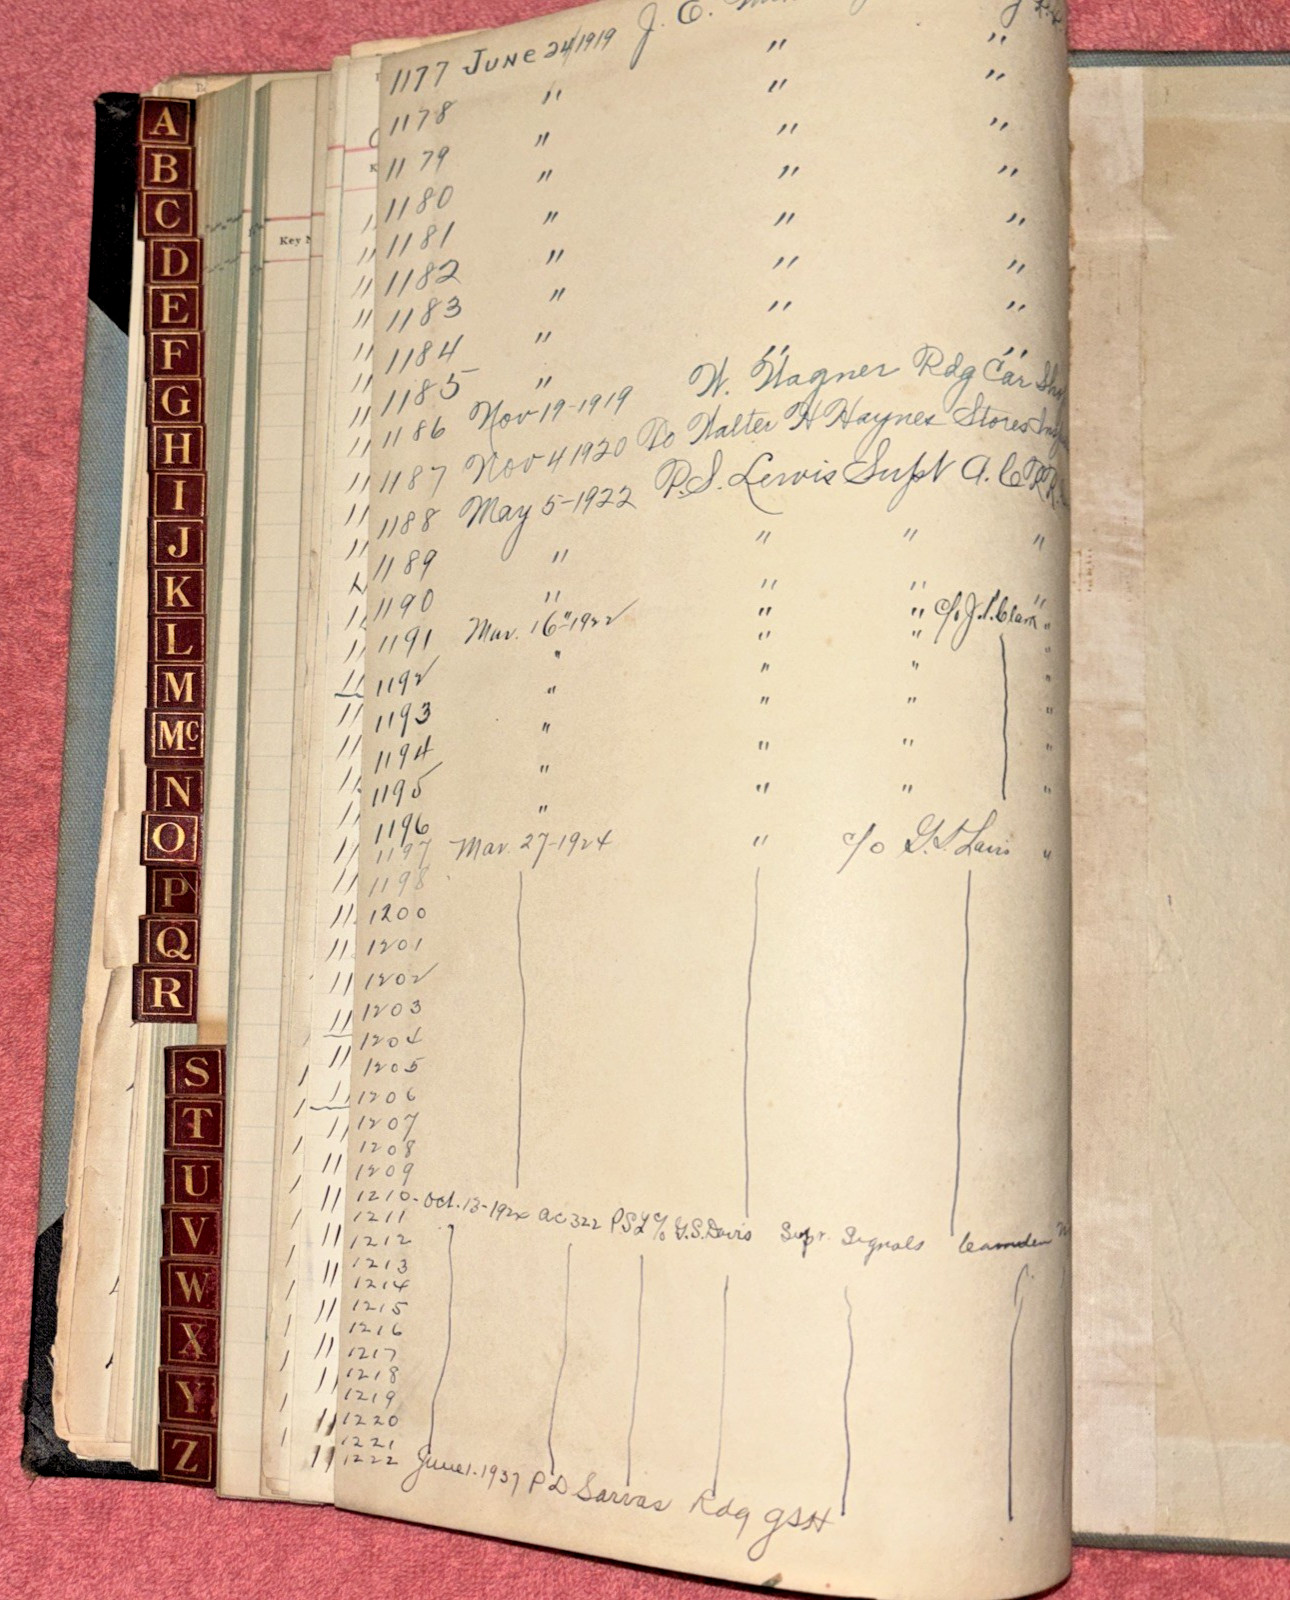 A
B
C
D
E
F
G
H
I
J
K
L
M
Mc
N
O
P
Q
R
S
T
U
V
W
X
Y
Z
Key
1177 June 24/1919 J. E.
1178 " " "
1179 " " "
1180 " " "
1181 " " "
1182 " " "
1183 " " "
1184 " " "
1185 " " "
1186 Nov 19-1919 W. Wagner Rdg Car
1187 Nov 4 1920 Do Walter H Haynes Stores
1188 May 5-1922 P.S. Lewis Supt A.C.RR.
1189 " " " "
1190 " " " "
1191 Mar. 16"-1922 " " c/o J. "
1192 " " " "
1193 " " " "
1194 " " " "
1195 " " " "
1196 " " " "
1197 Mar. 27-1924 " c/o "
1198
1200
1201
1202
1203
1204
1205
1206
1207
1208
1209
1210- Oct. 13-192 AC 322 PSL c/o G.S. Davis Supr. Signals Camden
1211
1212
1213
1214
1215
1216
1217
1218
1219
1220
1221
1222 June 1. 1937 P D Sarvas Rdg GSH